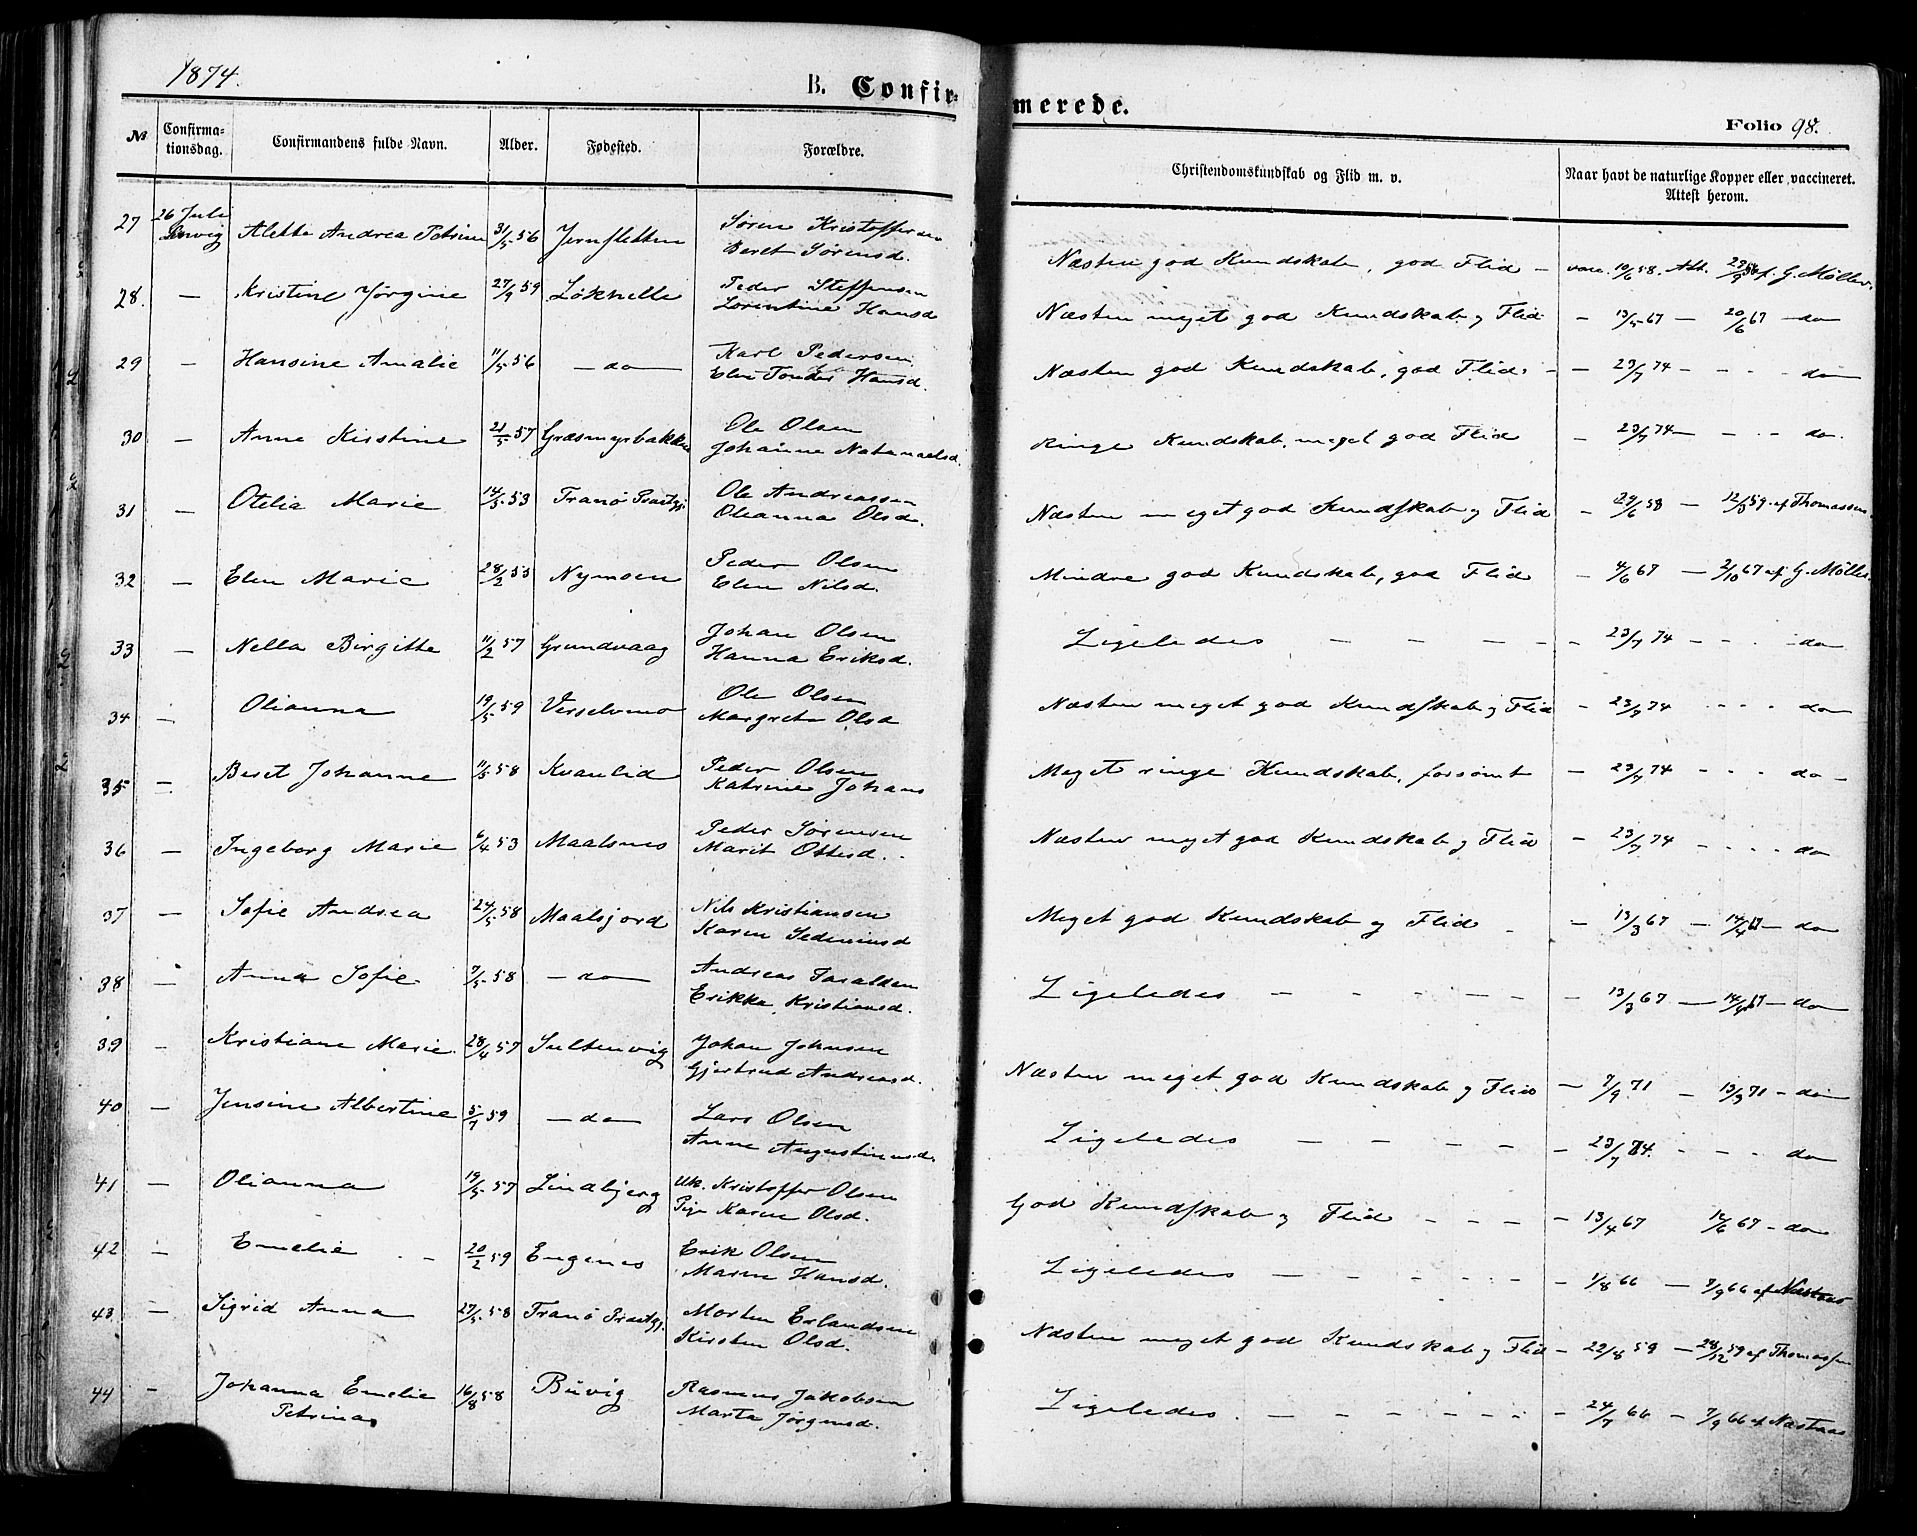 1874.
B. Confirmerede.
Folio 98.
№ Confirmationsdag. Confirmandens fulde Navn. Alder. Fødested. Forældre. Christendomskundskab og Flid m. v. Naar havt de naturlige Kopper eller vaccineret. Attest herom.
27 26 Juli Alette Andrea Petrine 31/5 56 Jernsletten Søren Kristoffersen
Beret Sørensd. Næsten god Kundskab, god Flid - vacc. 10/6 58. Att. f. G. Møller.
28. — Kristine Jørgine 27/9 59 Løkhelle Peder Steffensen
Lorentine Hansd Næsten meget god Kundskab og Flid - 13/5 67 — 20/6 67 — do
29 — Hansine Amalie 11/5 56 — do — Karl Pedersen
Elen Tonder Hansd. Næsten god Kundskab, god Flid - - 23/7 74 - - - - do
30 — Anne Kirstine 21/5 57 Græsmyrbakken Ole Olsen
Johanne Natanaelsd. Ringe Kundskab, meget god Flid - 23/7 74 - - - - do.
31 — Otelia Marie 14/5 53 Tranø Præstgj. Ole Andreassen
Oleanna Olsd. Næsten meget god Kundskab og Flid - 24/6 58 — 12/5 59 af Thomassen.
32 — Elen Marie 28/2 55 Nymoen Peder Olsen
Elen Nilsd. Mindre god Kundskab, god Flid - 4/6 67 — 2/10 67 af G. Møller
33 — Nella Birgitte 11/2 57 Grundvaag Johan Olsen
Hanna Eriksd. Ligeledes — - - - - 23/7 74 - - - do
34 — Olianna 19/5 59 Vesselvmo Ole Olsen
Margrete Olsd Næsten meget god Kundskab og Flid - 23/7 74 - - - - do
35 — Beret Johanne 11/5 58 Kvanlid Peder Olsen
Katrine Johans Meget ringe Kundskab, forsømt - 23/7 74 - - - do -
36 — Ingeborg Marie 6/4 53 Maalsnes Peder Sørensen
Marit Ottesd. Næsten meget god Kundskab og Flid - 23/7 74 - - - - do
37 — Sofie Andrea 24/5 58 Maalsjord Nils Kristiansen
Karen Sedeniusd Meget god Kundskab og Flid - - 13/3 67 — 14/4 67 — do
38 — Anna Sofie 7/5 58 — do — Andreas Taralden
Erikka Kristiansd. Ligeledes — - - - - - 13/3 67 — 14/4 67 — do
39 — Kristiane Marie. 28/4 57 Sultenvig Johan Johnsen
Gjertrud Andreasd. Næsten meget god Kundskab og Flid - 7/9 71 - 13/9 71 - do
40 — Jensine Albertine 5/7 59 — do — Lars Olsen
Anne Augustinusd. Ligeledes — - - - - 23/7 74. - - - do
41 — Olianna 19/5 57 Lindbjerg Uk. Kristoffer Olsen
Pige Karen Olsd. God Kundskab og Flid - - - - 13/4 67 12/6 67 - do
42 — Emelie 20/2 59 Eugenes Erik Olsen
Maren Hansd. Ligeledes — - - - - - 1/8 66 — 7/9 66 af Næstaas
43. — Sigrid Anna 27/5 58 Tranø Præstgj. Morten Erlandsen
Kirsten Olsd. Næsten meget god Kundskab og Flid - 22/8 59 — 28/12 59 af Thomassen
44 — Johanna Emelie
Petrina 16/8 58 Buvig Rasmus Jakobsen
Marta Jørgensd. Ligeledes. — - - - - - 24/7 66 — 7/9 66 af Næstaas